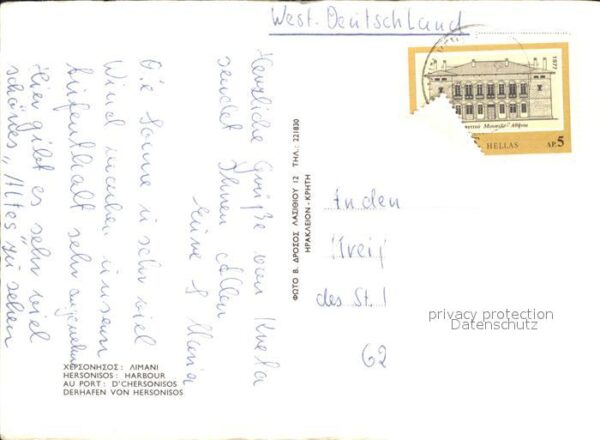 West-Deutschland
1977
Μουσεῖο Ἀθῆναι
HELLAS ΔΡ. 5
Herzliche Grüße von Kreta
sendet Ihnen Allen
Maria
Die Sonne u. sehr viel
Wind machen unseren
Aufenthalt sehr angenehm
Hier gibt es sehr viel
schönes „Altes" zu sehen
ΦΩΤΟ Β. ΔΡΟΣΟΣ ΛΑΣΙΘΙΟΥ 12 ΤΗΛ.: 221830
ΗΡΑΚΛΕΙΟΝ - ΚΡΗΤΗ
An den
Kreis
des St. I
62
privacy protection
Datenschutz
ΧΕΡΣΟΝΗΣΟΣ: ΛΙΜΑΝΙ
HERSONISOS: HARBOUR
AU PORT: D'CHERSONISOS
DERHAFEN VON HERSONISOS